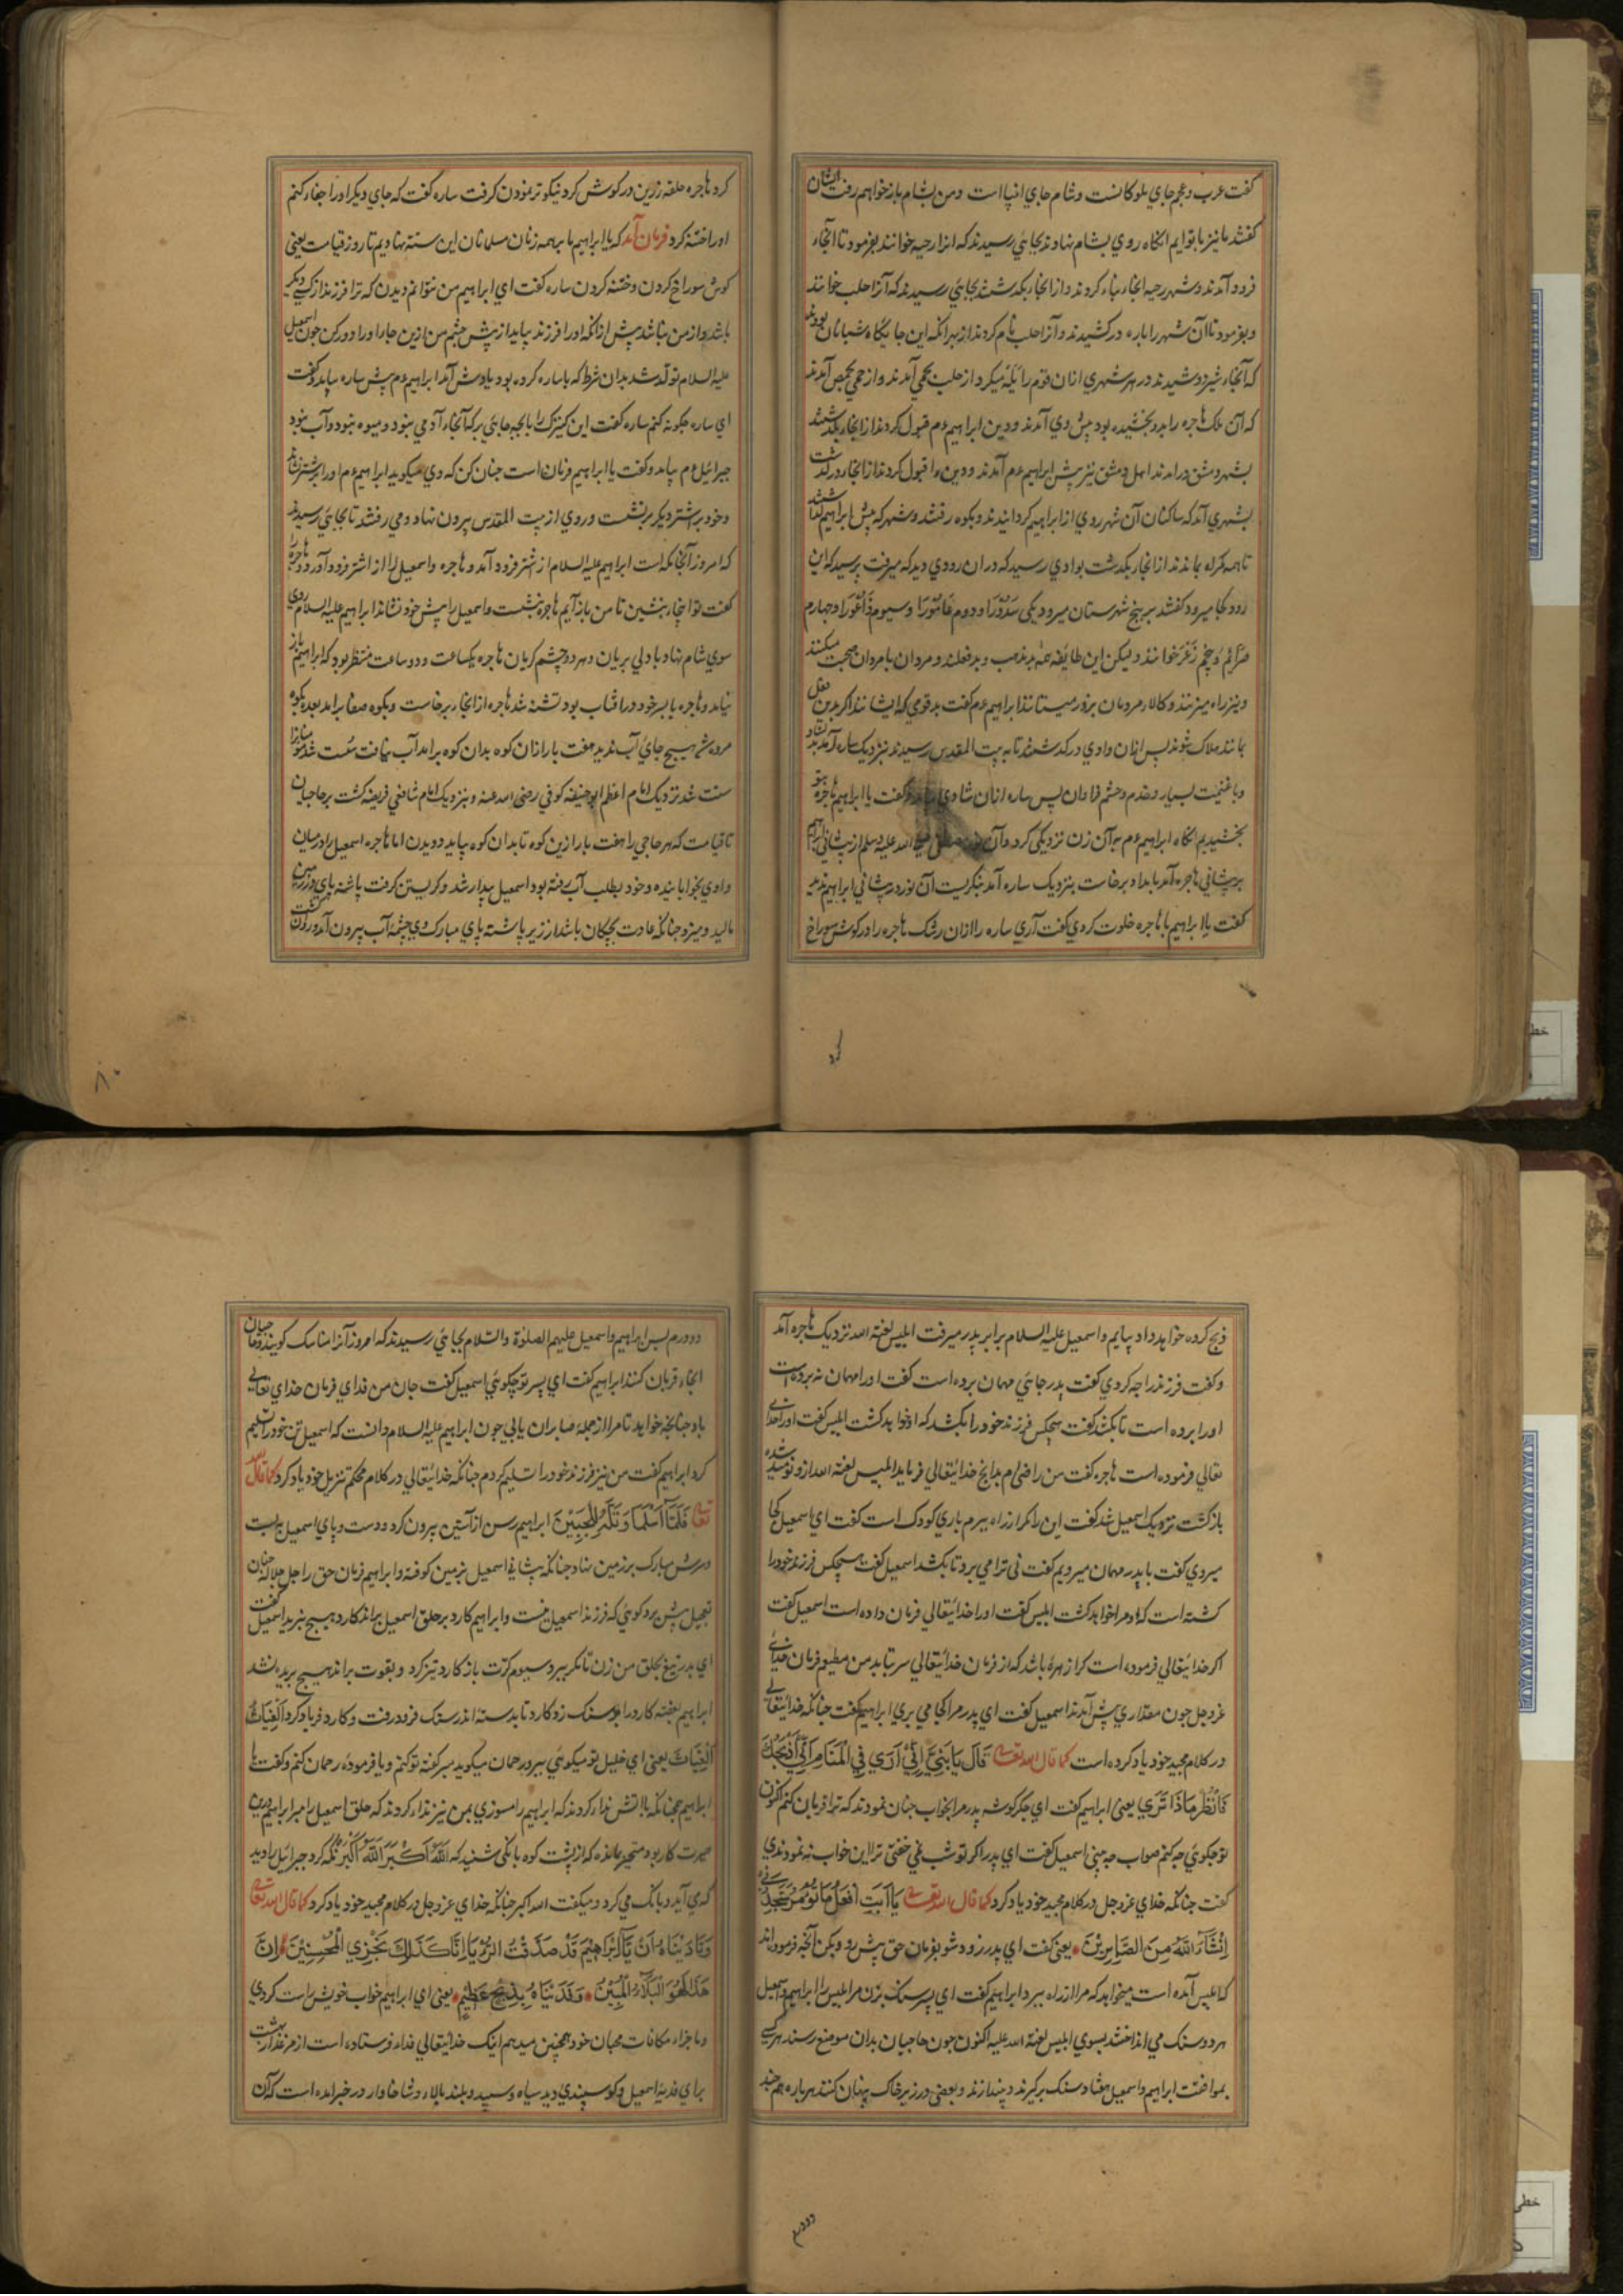 کفت عرب و عجم جاي ملوکانست و شام جاي انبیا است و من بشام باز خواهم رفت ایشان
کفتند ما نیز با توایم انکاه روي بشام نهادند بجایي رسیدند که انرا رحبه خوانند بفرمود تا آنجاء
فرود آمدند و شهر رحبه آنجاء بناء کردند و از آنجا بکذشتند بجایي رسیدند که آنرا حلب خوانند
و بفرمود تا آن شهر را باره در کشیدند و آنرا حلب نام کردند از بهر آنکه این جایکاه شبانان بودند
که آنجاء شیر دوشیدند در هر شهري ازان قوم را میکرد از حلب بحمي آمدند و از حمي بحمص آمدند
که آن ملک هاجره را بدو بخشیده بود پیش وي آمدند و دین ابراهیم عم قبول کردند از آنجا بکذشتند
بشهر دمشق در امدند اهل دمشق نیز پیش ابراهیم عم آمدند و دین قبول کردند از آنجا در کذشت
بشهري آمد که ساکنان آن شهر روي از ابراهیم کردانیدند و بکوه رفتند و شهر که پیش ابراهیم
تا همه کمراه بماندند از آنجا بکذشت بوادي رسید که دران رودي دید که میرفت پرسید که این
رود کجا میرود کفتند بر پنج شهرستان میرود یکي سدورا و دوم عامورا و سیوم ذاعورا و چهارم
صرایم و پنجم زغر خوانند ولیکن این طایفه همه بد مذهب و بد فعلند و مردان با مردان صحبت میکنند
و نیز راه میزنند و کالاء مردمان بزور میستانند ابراهیم عم کفت بد قومي که ایشانند اکر بدین فعل
بمانند هلاک شوند پس ازان وادي در کذشتند تا به بیت المقدس رسیدند بنزدیک ساره آمد بدلشاد
و با غنیمت بسیار و خدم و حشم فراوان پس ساره ازان شادي و کفت یا ابراهیم هاجره بتو
بخشیدم انکاه ابراهیم عم به آن زن نزدیکي کرد و آن نور مصطفي صلي الله علیه وسلم از پیشاني ابراهیم
بر پیشاني هاجره آمد بامداد برخاست بنزدیک ساره آمد بنکریست آن نور در پیشاني ابراهیم ندید
کفت یا ابراهیم با هاجره خلوت کردي کفت آري ساره را ازان رشک هاجره را در کوش سوراخ
کرد
کرد هاجره حلقه زرین در کوش کرد نیکوتر نمودن کرفت ساره کفت که جاي دیکر او را جفاء کنم
او را ختنه کرد فرمان آمد که یا ابراهیم ما بر همه زنان مسلمانان این سنت نهادیم تا روز قیامت یعني
کوش سوراخ کردن و ختنه کردن ساره کفت اي ابراهیم من نتوانم دیدن که ترا فرزند از کسي دیکر
باشد و از من نباشد پیش ازانکه او را فرزند بیاید از پیش چشم من ازین جا او را دور کن چون اسمعیل
علیه السلام تولد شد بدان شرط که با ساره کرده بود یادش آمد ابراهیم عم پیش ساره بیامد و کفت
اي ساره چکونه کنم ساره کفت این کنیزک را با بچه جایي بر که آنجاء آدمي نبود و میوه نبود و آب نبود
جبرائیل عم بیامد و کفت یا ابراهیم فرمان است چنان کن که وي میکوید ابراهیم عم او را بر اشتر نشاند
و خود بر اشتر دیکر بر نشست و روي از بیت المقدس بیرون نهاد و مي رفتند تا بجایي رسیدند
که امروز آنجا مکه است ابراهیم علیه السلام از اشتر فرود آمد و هاجره و اسمعیل را از اشتر فرود آورد و هاجره را
کفت تو اینجاء بنشین تا من باز آیم هاجره بنشست و اسمعیل را پیش خود نشاند ابراهیم علیه السلام روي
سوي شام نهاد با دلي بریان و هر دو چشم کریان هاجره یکساعت و دو ساعت منتظر بود که ابراهیم باز
نیامد و هاجره با پسر خود در آفتاب بود تشنه شد هاجره از آنجا برخاست و بکوه صفا برامد بعد بکوه
مروه شد هیچ جاي آب ندید هفت بار ازان کوه بدان کوه برامد آب نیافت سست شد
سنت شد نزدیک امام اعظم ابو حنیفه کوفي رضي الله عنه و بنزدیک امام شافعي فریضه کشت بر حاجیان
تا قیامت که هر حاجي را هفت بار ازین کوه تا بدان کوه بباید دویدن اما هاجره اسمعیل را در میان
وادي بخوابانیده و خود بطلب آب رفته بود اسمعیل بیدار شد و کریستن کرفت پاشنه پاي بر زمین
مالید و میزد چنانکه عادت بچکان باشد از زیر پاشنه پاي مبارک وي چشمه آب بیرون آمد و روان کشت
۸۰
ذبح کرده خواهد داد بیایم و اسمعیل علیه السلام برابر پدر میرفت ابلیس لعنة الله نزدیک هاجره آمد
و کفت فرزند را چه کردي کفت پدر جایي مهمان برده است کفت او را مهمان نه برده است
او را برده است تا بکشد کفت هیچکس فرزند خود را بکشد که او خواهد کشت ابلیس کفت او را خداي
تعالي فرموده است هاجره کفت من راضي ام بدانچ خدایتعالي فرماید ابلیس لعنة الله ازو نومید شده
باز کشت نزدیک اسمعیل شد کفت این را مکر از راه ببرم باري کودک است کفت اي اسمعیل کجا
میروي کفت با پدر مهمان میرویم کفت ني ترا مي برد تا بکشد اسمعیل کفت هیچکس فرزند خود را
کشته است که او مرا خواهد کشت ابلیس کفت او را خدایتعالي فرمان داده است اسمعیل کفت
اکر خدایتعالي فرموده است کرا زهره باشد که از فرمان خدایتعالي سر تابد من مطیعم فرمان خداي
عزوجل چون مقداري پیش آمدند اسمعیل کفت اي پدر مرا کجا مي بري ابراهیم کفت چنانکه خدایتعالي
در کلام مجید خود یاد کرده است کما قال الله تعالي قَالَ يَا بُنَيَّ إِنِّي أَرَي فِي الْمَنَامِ أَنِّي أَذْبَحُكَ
فَانْظُرْ مَاذَا تَرَي یعني ابراهیم کفت اي جکر کوشه پدر مرا بخواب چنان نمودند که ترا قربان کنم اکنون
تو چکویي چه کنم صواب چه بیني اسمعیل کفت اي پدر اکر تو شب نمي خفتي ترا این خواب نه نمودندي
کفت چنانکه خداي عزوجل در کلام مجید خود یاد کرد کما قال الله تعالي يَا أَبَتِ افْعَلْ مَا تُؤْمَرُ سَتَجِدُنِي
إِنْشَآءَ اللَّهُ مِنَ الصَّابِرِيْنَ یعني کفت اي پدر زود شو بفرمان حق پیش رو و بکن آنچه فرموده اند
که ابلیس آمده است میخواهد که مرا از راه ببرد ابراهیم کفت اي پسر سنک بزن مر ابلیس را ابراهیم و اسمعیل
هر دو سنک مي انداختند بسوي ابلیس لعنة الله علیه اکنون چون حاجیان بدان موضع رسند هر کسي
بموافقت ابراهیم و اسمعیل هفتاد سنک برکیرند و بیندازند و بعضي در زیر خاک پنهان کنند هر باره هم چند
دوورم
دوورم پس ابراهیم و اسمعیل علیهم الصلوة والسلام بجایي رسیدند که امروز آنرا مناسک کویند و حاجیان
آنجاء قربان کنند ابراهیم کفت اي پسر تو چکویي اسمعیل کفت جان من فداي فرمان خداي تعالي
باد چنانچه خواهد تا مرا از جمله صابران یابي چون ابراهیم علیه السلام دانست که اسمعیل تن خود را تسلیم
کرد ابراهیم کفت من نیز فرزند خود را تسلیم کردم چنانکه خدایتعالي در کلام محکم تنزیل خود یاد کرد کما قال الله
تعالي فَلَمَّآ أَسْلَمَا وَتَلَّهُ لِلْجَبِيْنِ ابراهیم رسن از آستین بیرون کرد و دست و پاي اسمعیل ببست
و سرش مبارک بر زمین نهاد چنانکه پیشاني اسمعیل بزمین کوفته و ابراهیم فرمان حق را جل جلاله چنان
تعجیل پیش برد کویي که فرزند اسمعیل نیست و ابراهیم کارد بر حلق اسمعیل براند کارد هیچ نبرید اسمعیل کفت
اي پدر تیغ بحلق من زن تا مکر ببرد سیوم کرت باز کارد تیز کرد و بقوت براند هیچ بریده نشد
ابراهیم خفته کارد را بر سنک زد کارد تا بدسته اندر سنک فرو رفت و کارد فریاد کرد اَلْغِيَاثُ
اَلْغِيَاثُ یعني اي خلیل تو میکویي ببر و رحمان میکوید مبر کفته تو کنم و یا فرموده رحمان کنم و کفت ما
ابراهیم همچنانکه با آتش نداء کردند که ابراهیم را مسوزي بمن نیز نداء کردند که حلق اسمعیل را مبر ابراهیم درین
حیرت کار بود متحیر مانده که از پشت کوه بانکي شنید که اَللَّهُ أَكْبَرُ اَللَّهُ أَكْبَرُ نکه کرد جبرائیل را دید
که مي آید و بانک مي کرد و میکفت الله اکبر چنانکه خداي عزوجل در کلام مجید خود یاد کرد کما قال الله تعالي
وَنَادَيْنَاهُ أَنْ يَآ إِبْرَاهِيْمُ قَدْ صَدَّقْتَ الرُّءْيَا إِنَّا كَذَلِكَ نَجْزِي الْمُحْسِنِيْنَ إِنَّ
هَذَا لَهُوَ الْبَلَآءُ الْمُبِيْنُ وَفَدَيْنَاهُ بِذِبْحٍ عَظِيْمٍ یعني اي ابراهیم خواب خویش راست کردي
و ما جزاء مکافات محبان خود همچنین میدهیم اینک خدایتعالي فداء فرستاده است از مرغزار بهشت
براي فدیه اسمعیل و کوسپندي دید سیاه و سپید و بلند بالا و شاخاوار در خبر امده است که آن
خطی
خطی